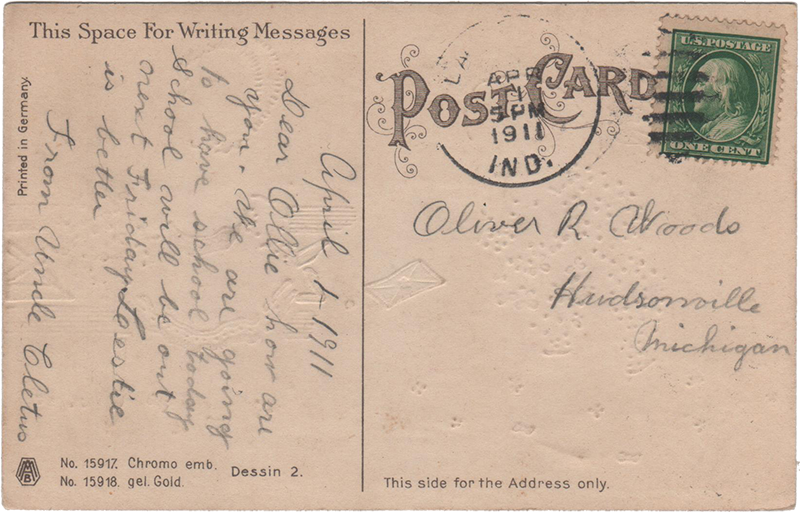 This Space For Writing Messages
April 4 1911
Dear Ollie how are
you. We are going
to have school today
School will be out
next Friday Leslie
is better
From Uncle Cletus
Printed in Germany.
No. 15917. Chromo emb.
No. 15918. gel. Gold.
Dessin 2.
POST CARD
APR
5 PM
1911
IND.
U.S. POSTAGE
ONE CENT
Oliver R Woods
Hudsonville
Michigan
This side for the Address only.